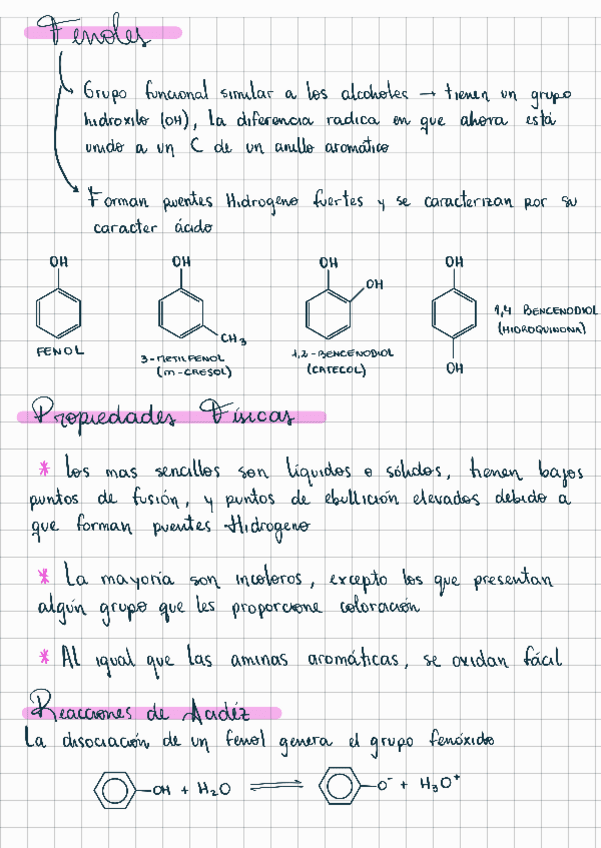 Fenoles
Grupo funcional similar a los alcoholes → tienen un grupo
hidroxilo (OH), la diferencia radica en que ahora está
unido a un C de un anillo aromático
Forman puentes Hidrogeno fuertes y se caracterizan por su
caracter ácido
OH OH OH OH
OH
CH3
FENOL
3-METILFENOL
(m-CRESOL)
1,2-BENCENODIOL
(CATECOL)
1,4 BENCENODIOL
(HIDROQUINONA)
OH
Propiedades Físicas
* Los mas sencillos son líquidos o sólidos, tienen bajos
puntos de fusión, y puntos de ebullición elevados debido a
que forman puentes Hidrogeno
* La mayoría son incoloros, excepto los que presentan
algún grupo que les proporcione coloración
* Al igual que las aminas aromáticas, se oxidan fácil
Reacciones de Acidéz
La disociación de un fenol genera el grupo fenóxido
OH + H2O ⇌ O⁻ + H3O⁺